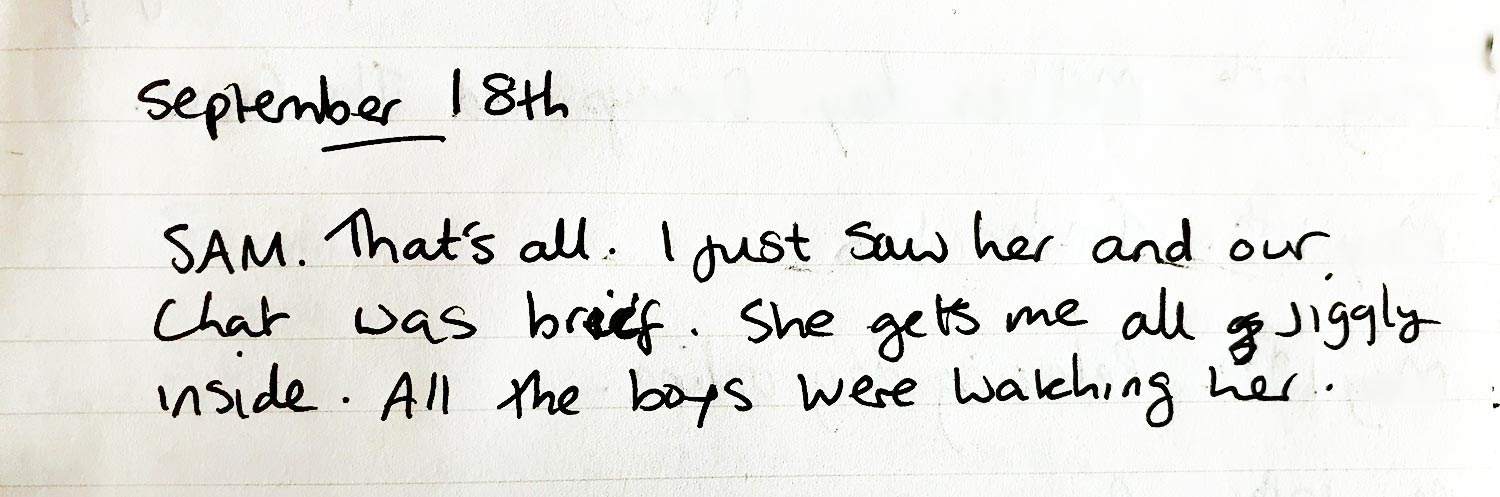 September 18th
SAM. That's all. I just saw her and our
Chat was brief. She gets me all Jiggly
inside. All the boys were watching her.